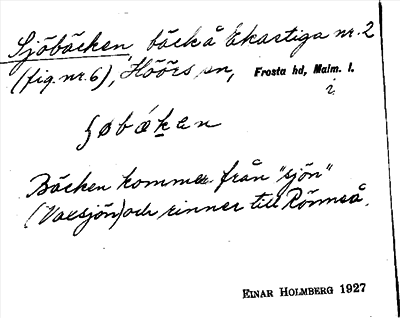 Sjöbäcken, bäck å Ekastiga nr. 2
(fig. nr. 6), Höörs sn, Frosta hd, Malm. l.
Bäcken kommer från "sjön"
(Vaxsjön) och rinner till Rönneå.
EINAR HOLMBERG 1927